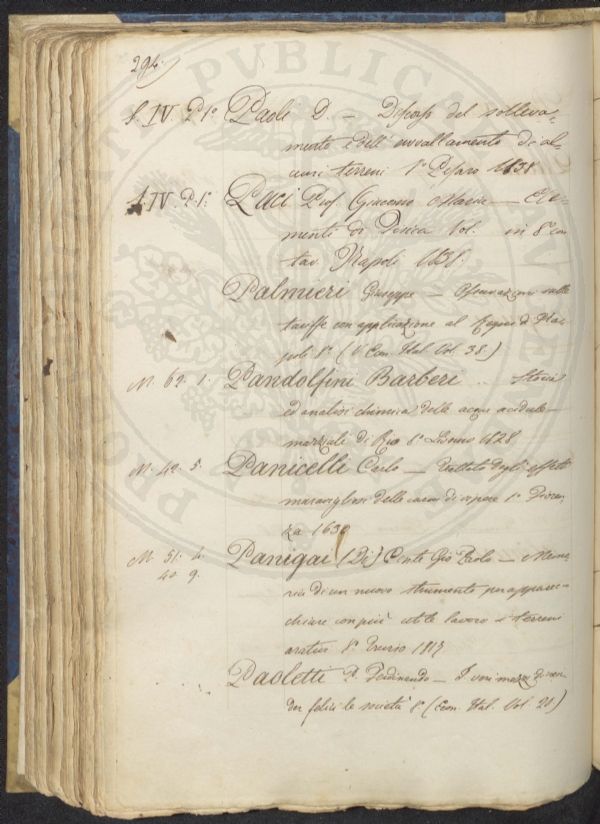 294.
S. IV. P. 1ª Paoli D. — Discorso del solleva-
mento e dell' avvallamento di al-
cuni terreni 8° Pesaro 1838
S. IV. P. 1ª Paci Prof. Giacomo Maria — Ele-
menti di Fisica Vol. in 8° con
tav. Napoli 1838.
Palmieri Giuseppe — Osservazioni sulle
tariffe con applicazione al Regno di Na-
poli 8° (V. Econ. Ital. Vol. 38)
M. 69. 1. Pandolfini Barberi — Storia
ed analisi chimica delle acque acidule
marziali di Rio 8° Livorno 1828
M. 42. 5. Panicelli Carlo — Trattato degli effetti
maravigliosi della carne di vipera 8° Firen-
za 1630
M. 51. 4. Panigai (Di) Conte Gio Paolo — Memo-
40. 9. ria di un nuovo strumento per apparec-
chiare con più utile lavoro i terreni
arativi 8°
Paoletti D. Ferdinando — I veri mezzi di ren-
der felici le società 8° (Econ. Ital. Vol. 20)
PUBLICA